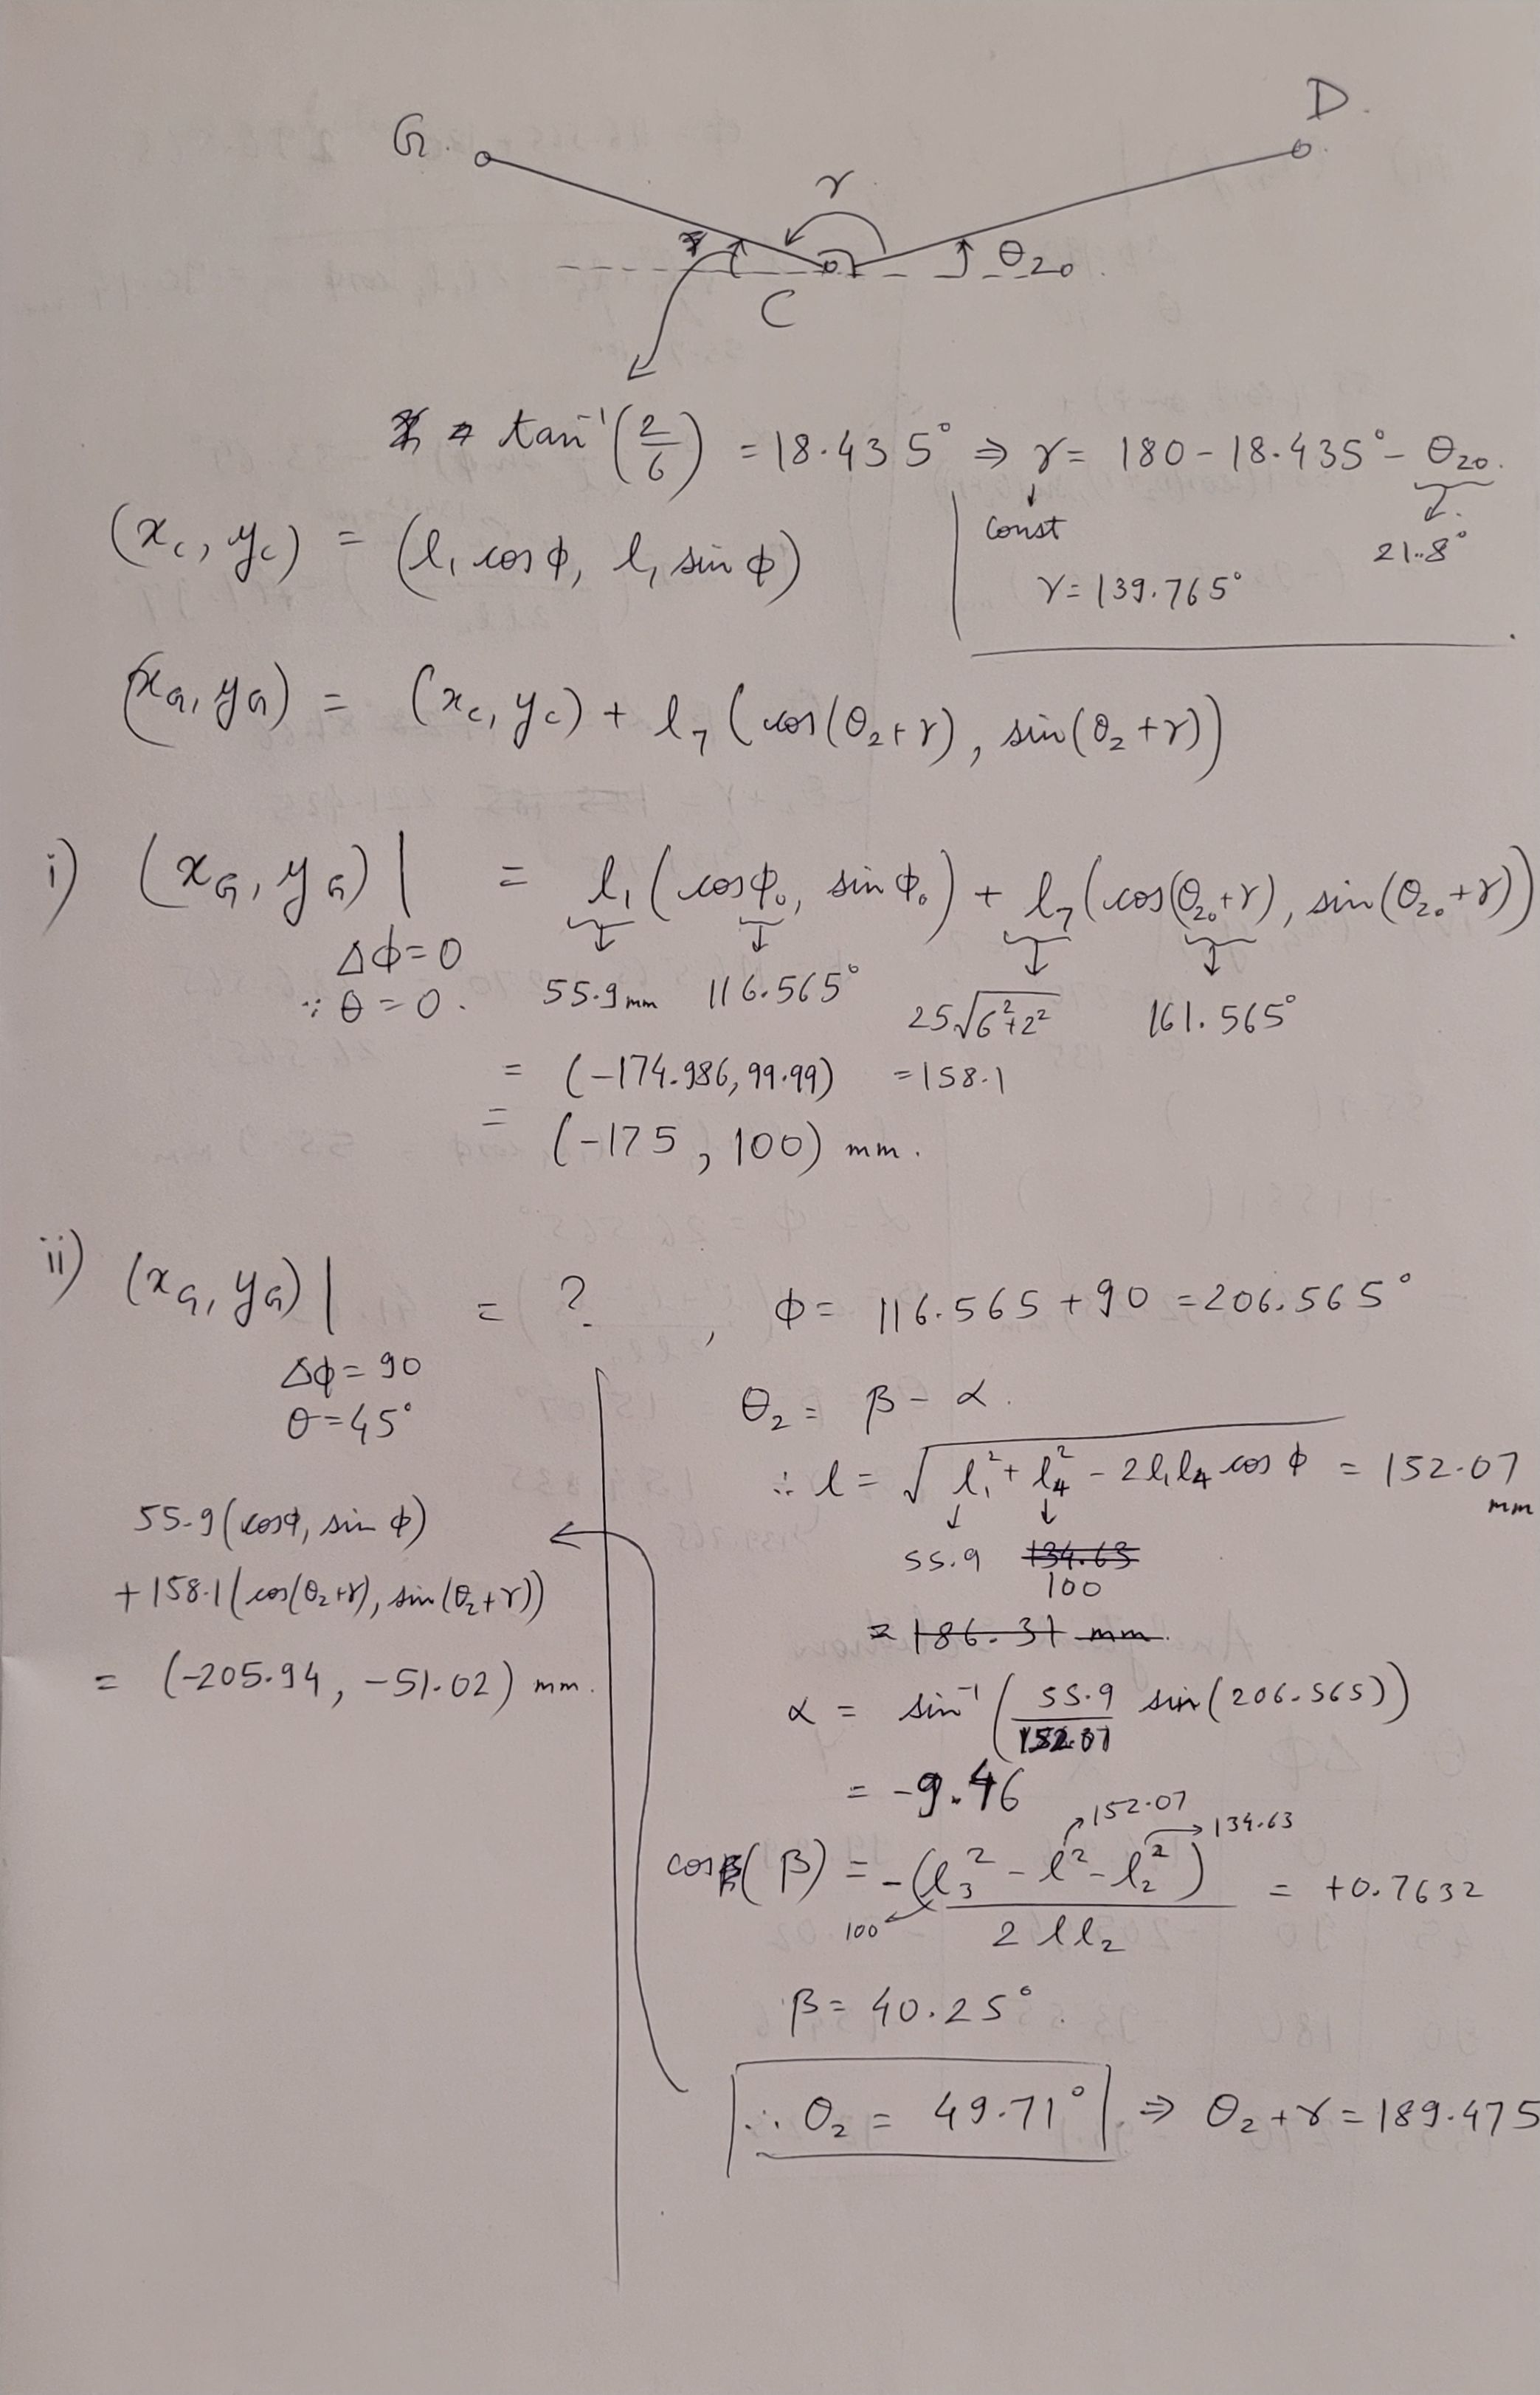 G. D.
γ
θ₂₀
C
tan⁻¹(2/6) = 18.435° ⇒ γ = 180 - 18.435° - θ₂₀.
const 21.8°
γ = 139.765°
(x_c, y_c) = (l₁ cos φ, l₁ sin φ)
(x_G, y_G) = (x_c, y_c) + l₇ (cos(θ₂+γ), sin(θ₂+γ))
i) (x_G, y_G) | = l₁ (cos φ₀, sin φ₀) + l₇ (cos(θ₂₀+γ), sin(θ₂₀+γ))
Δφ=0
∵ θ=0.
55.9 mm 116.565° 25√(6²+2²) 161.565°
= (-174.986, 99.99) = 158.1
= (-175, 100) mm.
ii) (x_G, y_G) | = ? , φ = 116.565 + 90 = 206.565°
Δφ = 90
θ = 45°
55.9 (cosφ, sin φ)
+ 158.1 (cos(θ₂+γ), sin(θ₂+γ))
= (-205.94, -51.02) mm.
θ₂ = β - α.
∴ l = √(l₁² + l₄² - 2l₁l₄ cos φ) = 152.07 mm
55.9 134.63
100
= 186.31 mm.
α = sin⁻¹(55.9/152.07 sin(206.565))
= -9.46
152.07 134.63
cos(β) = -(l₃² - l² - l₂²) / 2 l l₂ = +0.7632
100
β = 40.25°.
∴ θ₂ = 49.71° ⇒ θ₂ + γ = 189.475